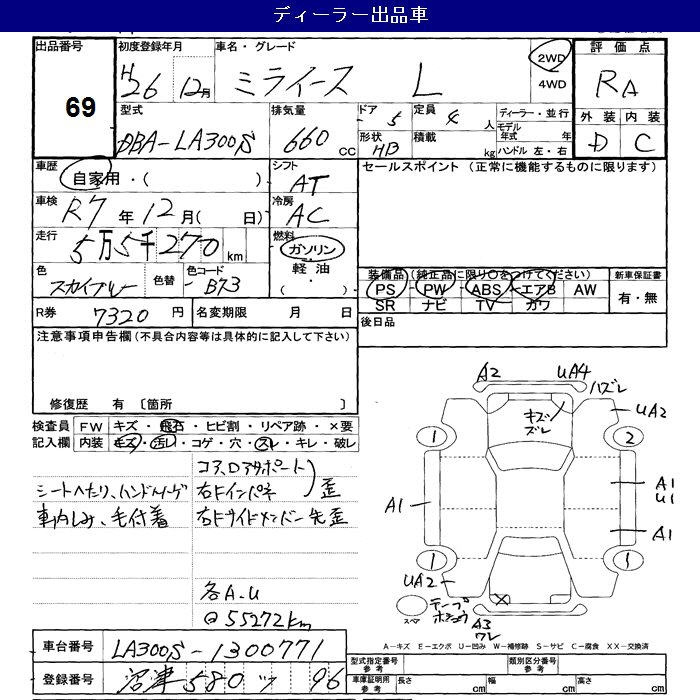 ディーラー出品車
出品番号 69
初度登録年月 H26 12月
車名・グレード ミライース L
2WD
4WD
評価点 RA
外装 D 内装 C
型式 DBA-LA300S
排気量 660 cc
ドア 5
定員 4 人
形状 HB
積載 kg
ディーラー・並行
モデル年式 年
ハンドル 左・右
車歴 自家用・( )
シフト AT
セールスポイント (正常に機能するものに限ります)
車検 R7年12月( 日)
冷房 AC
走行 5万5千270 km
燃料 ガソリン
軽油
・( )
色 スカイブルー
色替
色コード B73
装備品(純正品に限り○をつけてください)
PS PW ABS エアB AW
SR ナビ TV カワ
新車保証書
有・無
R券 7320 円
名変期限 月 日
後日品
注意事項申告欄(不具合内容等は具体的に記入して下さい)
修復歴 有 〔箇所 〕
検査員 FW キズ・飛石・ヒビ割・リペア跡・×要
記入欄 内装 キズ・汚レ・コゲ・穴・スレ・キレ・破レ
コアロアサポート
右Fインパネ 歪
右Fサイドメンバー先歪
シートヘたり、ハンドルハゲ
車内しみ、毛付着
各A.U
@55272km
A2
UA4
ハズレ
UA2
キズ
ズレ
1
2
A1
A1
U1
A1
1
UA2
スペア
テープ
A3
ワレ
A-キズ E-エクボ U-凹み W-補修跡 S-サビ C-腐食 XX-交換済
車台番号 LA300S-1300771
登録番号 沼津 580 ツ 96
型式指定番号 参考
類別区分番号 参考
車庫証明用 参考
長さ cm
幅 cm
高さ cm